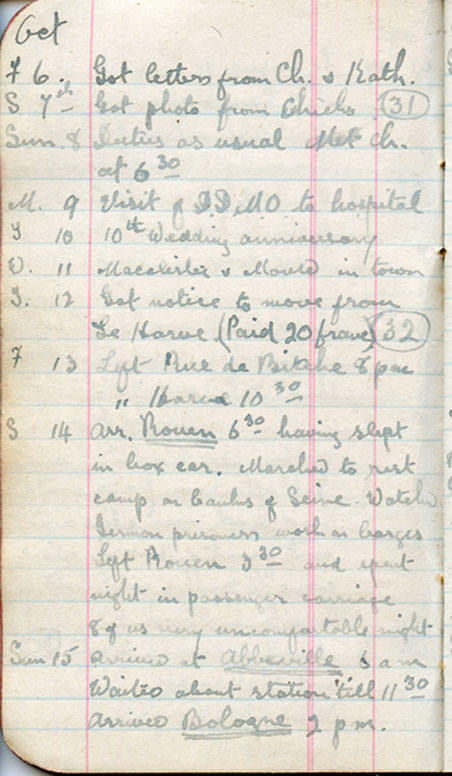 Oct
F 6. Got letters from Ch. & Kath.
S 7th Got photo from Chicks (31)
Sun. 8 Duties as usual Met Ch.
at 6 30
M. 9 Visit of D.D.M.O to hospital
T 10 10th Wedding anniversary
W. 11 Macalister & in town
T. 12 Got notice to move from
Le Havre (Paid 20 francs) (32)
F 13 Left Rue de Bitche 8 pm
" Havre 10 30
S 14 Arr. Rouen 6 30 having slept
in box car. Marched to rest
camp on banks of Seine. Watched
German prisoners work on barges
Left Rouen 3 30 and spent
night in passenger carriage
8 of us very uncomfortable night
Sun 15 arrived at Abbeville 6 am
Waited about station till 11 30
Arrived Bologne 2 pm.